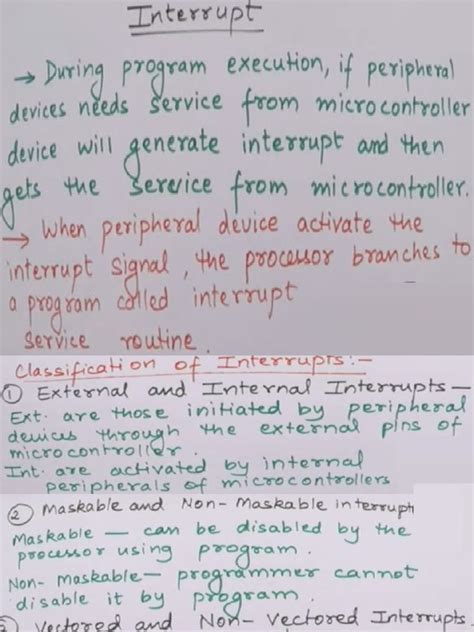 Interrupt
→ During program execution, if peripheral
devices needs service from microcontroller
device will generate interrupt and then
gets the service from microcontroller.
→ When peripheral device activate the
interrupt signal, the processor branches to
a program called interrupt
service routine.
Classification of Interrupts:-
① External and Internal Interrupts —
Ext. are those initiated by peripheral
devices through the external pins of
microcontroller.
Int. are activated by internal
peripherals of microcontrollers
② Maskable and Non-Maskable interrupt
Maskable — can be disabled by the
processor using program.
Non-Maskable — programmer cannot
disable it by program.
③ Vectored and Non-Vectored Interrupts